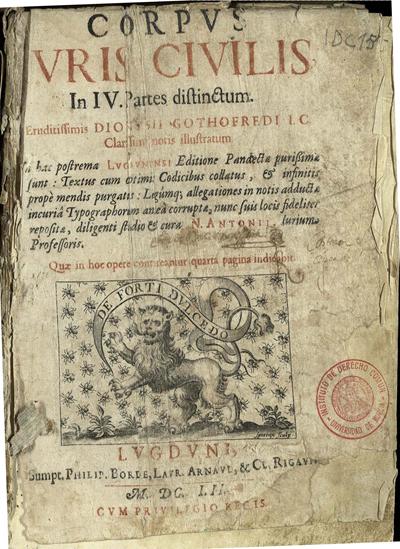 CORPVS
VRIS CIVILIS
IDC15
In IV. Partes distinctum.
Eruditissimis DIONYSII GOTHOFREDI I.C.
Clarissim notis illustratum
hac postrema LVGDVNENSI Editione Pandectæ purissimæ
sunt: Textus cum optimis Codicibus collatus, & infinitis
propè mendis purgatus: Legumq; allegationes in notis adductæ
incuriâ Typographorum anteà corruptæ, nunc suis locis fideliter
repositæ, diligenti studio & curâ N. ANTONII, Iurium
Professoris.
Quæ in hoc opere contineantur quarta pagina indicabit.
DE FORTI DVLCEDO
INSTITUTO DE DERECHO COMUN
UNIVERSIDAD DE MURCIA
LVGDVNI,
Sumpt. PHILIP. BORDE, LAVR. ARNAVD, & CL. RIGAVD
M. DC. LII.
CVM PRIVILEGIO REGIS.